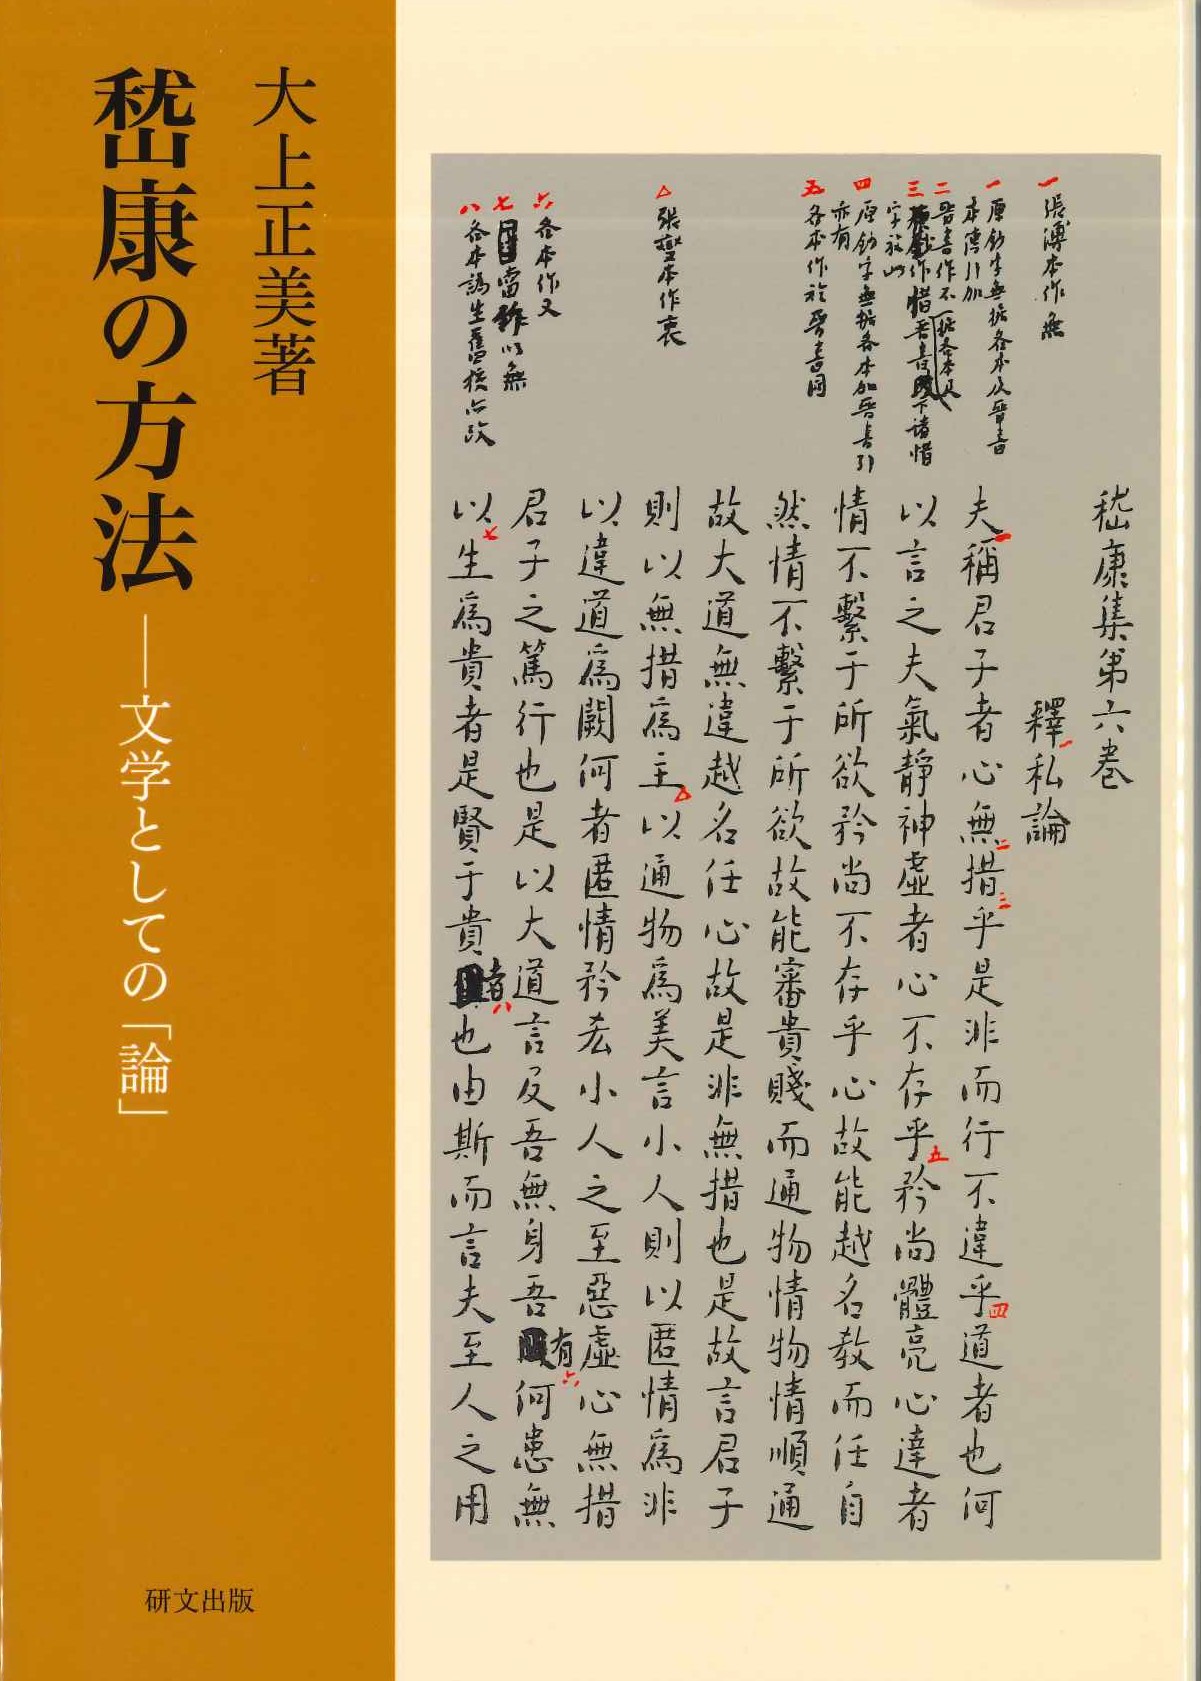 大上正美著
嵆康の方法
――文学としての「論」
研文出版
一 張溥本作無
一 原鈔字無據各本及晉書
本傳引加
四 原鈔字無據各本加晉書引
亦有
五 各本作於晉書同
△ 張燮本作衷
六 各本作又
七 當作以無
八 各本譌生舊校亦改
嵆康集第六卷
釋一私論
夫一稱君子者心無二措三乎是非而行不違乎四道者也何
以言之夫氣靜神虛者心不存乎五矜尚體亮心達者
情不繫于所欲矜尚不存乎心故能越名教而任自
然情不繫于所欲故能審貴賤而通物情物情順通
故大道無違越名任心故是非無措也是故言君子
則以無措爲主△以通物爲美言小人則以匿情爲非
以違道爲闕何者匿情矜吝小人之至惡虛心無措
君子之篤行也是以大道言及吾無身吾有六何患無
以七生爲貴者是賢于貴者八也由斯而言夫至人之用